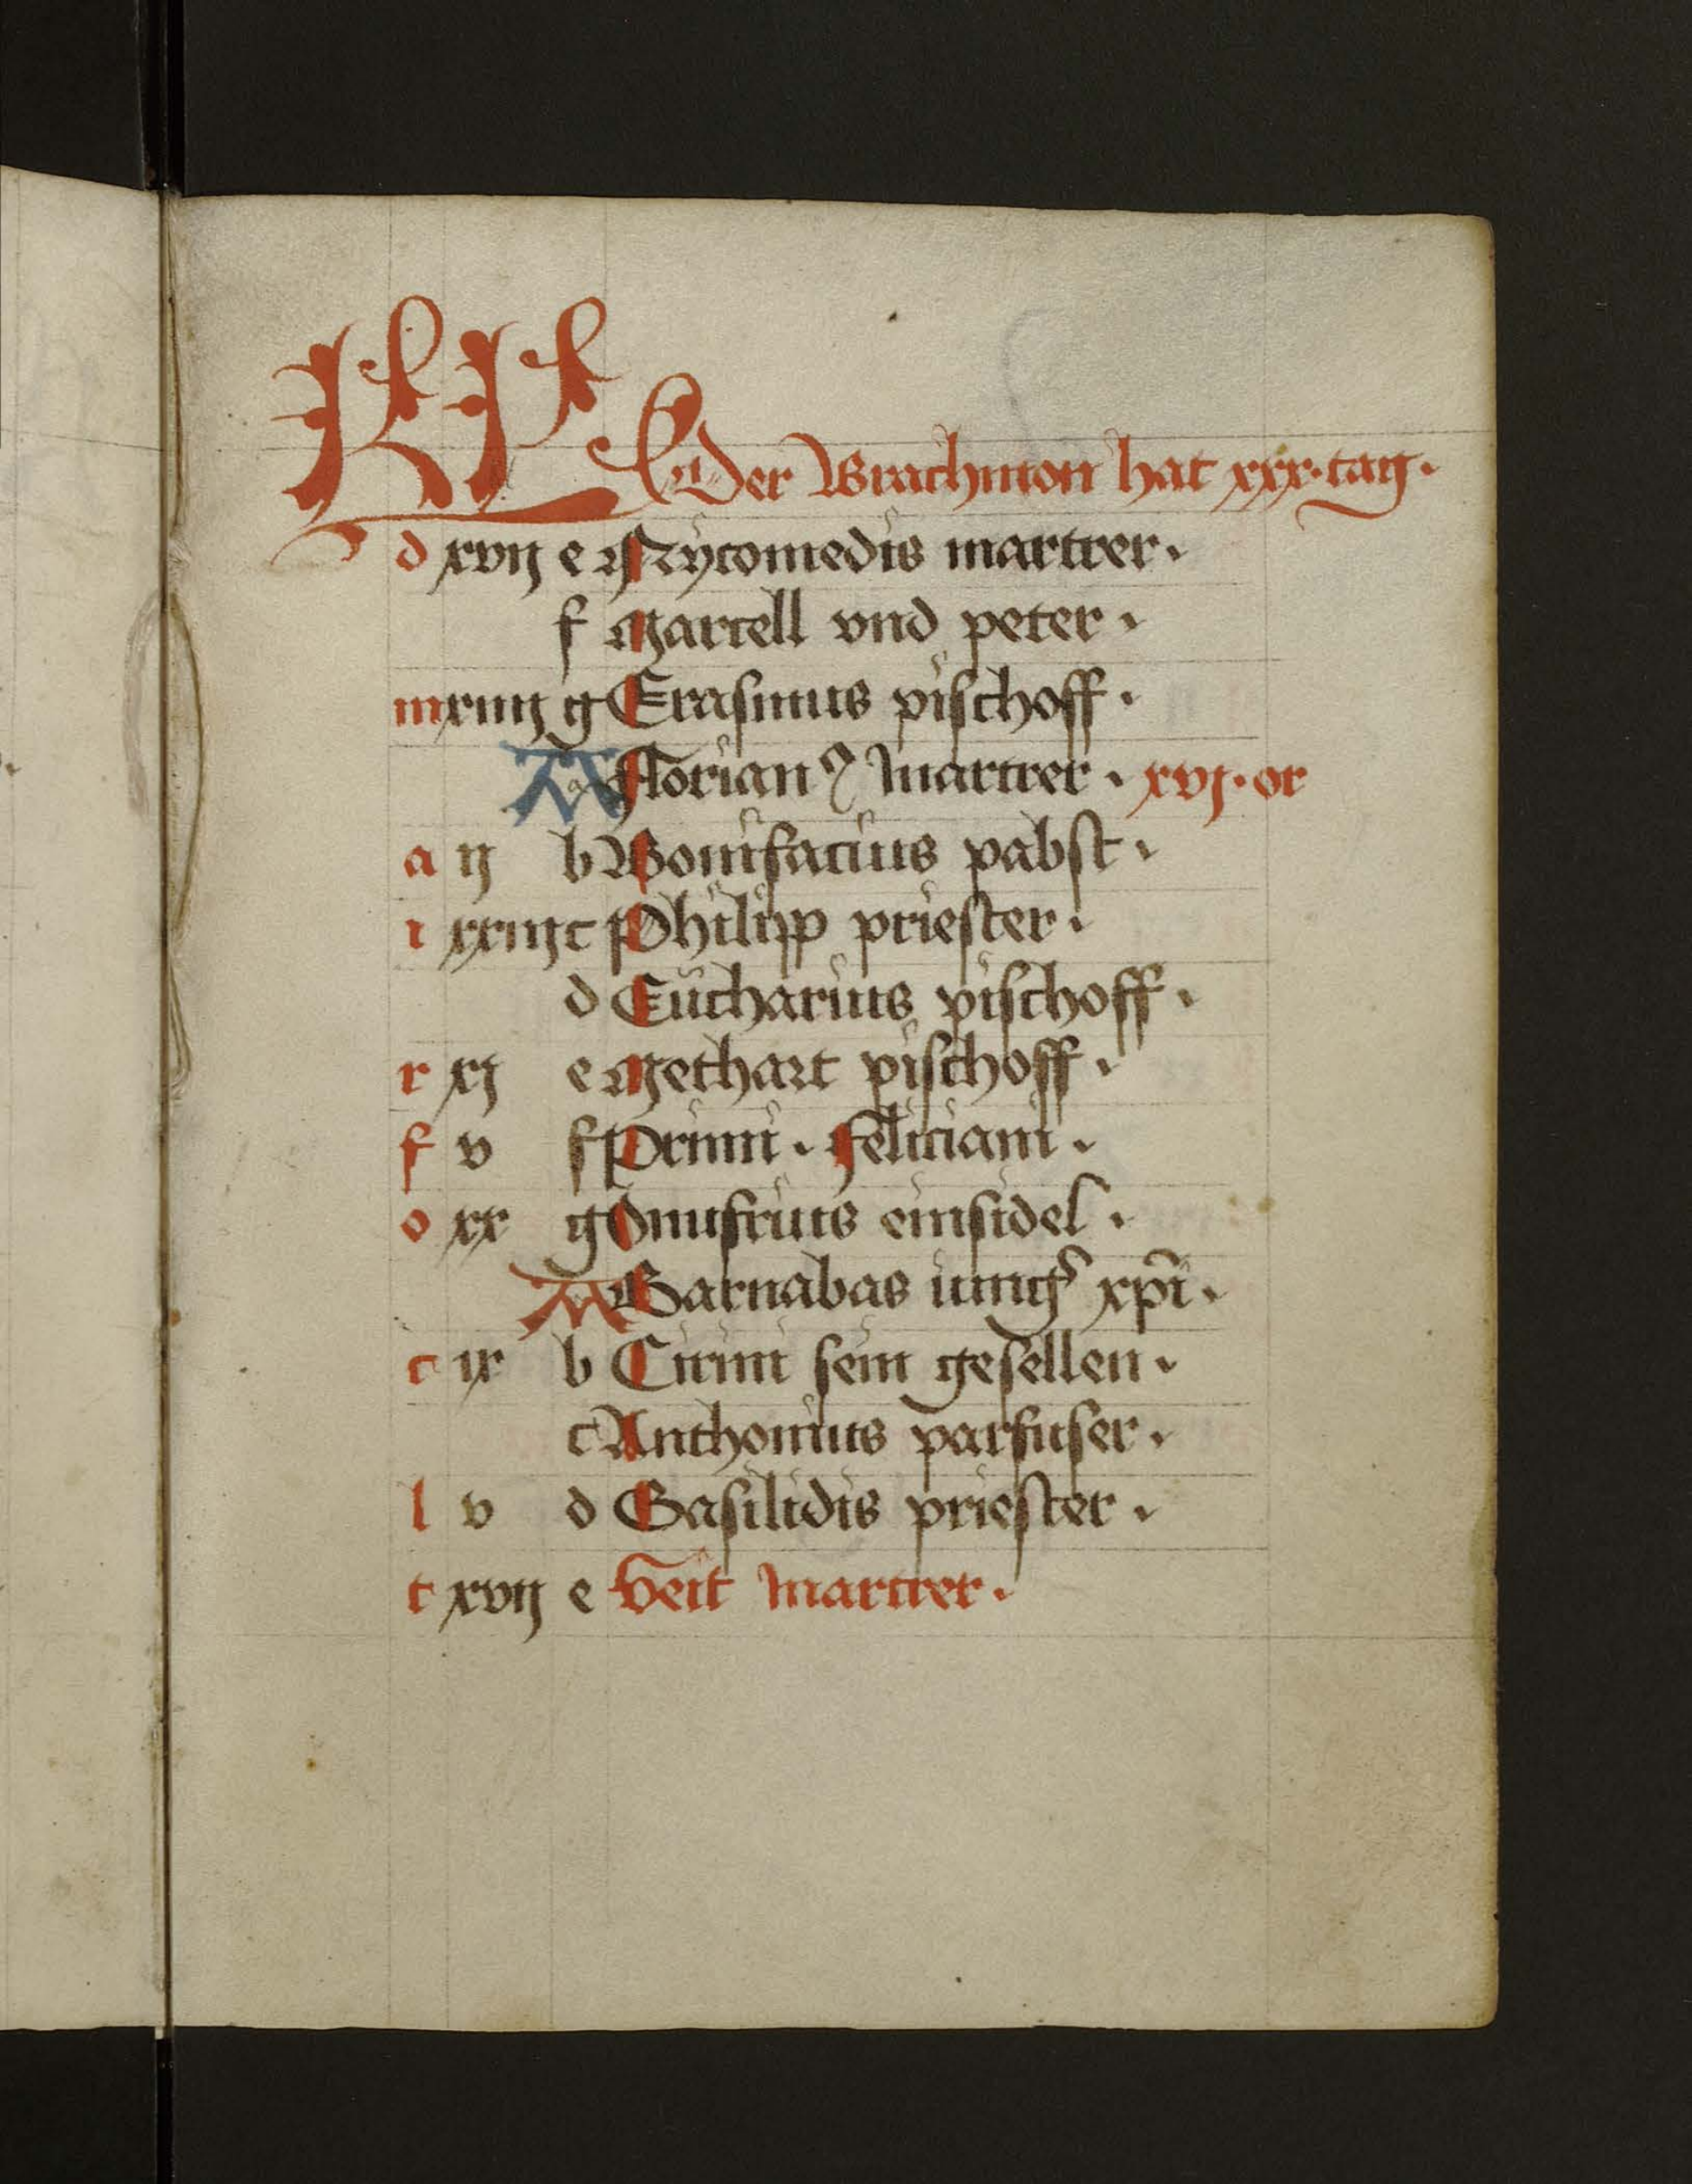 KL Der Brachmon hat xxx·tag·
d xvij e Nycomedis martrer·
f Marcell vnd peter·
m xiiij g Erasmus pischoff·
A Florianꝰ Martrer· xvj·or
a ij b Bonifacius pabst·
i xxiij c Philipp priester·
d Eucharius pischoff·
r xj e Methart pischoff·
f v f Primi· Feliciani·
o xx g Onufrius einsidel·
A Barnabas iungẜ xp̄i·
c ix b Cirini sein gesellen·
c Anthonius parfuser·
l v d Basilidis priester·
t xvij e Veit Martrer·